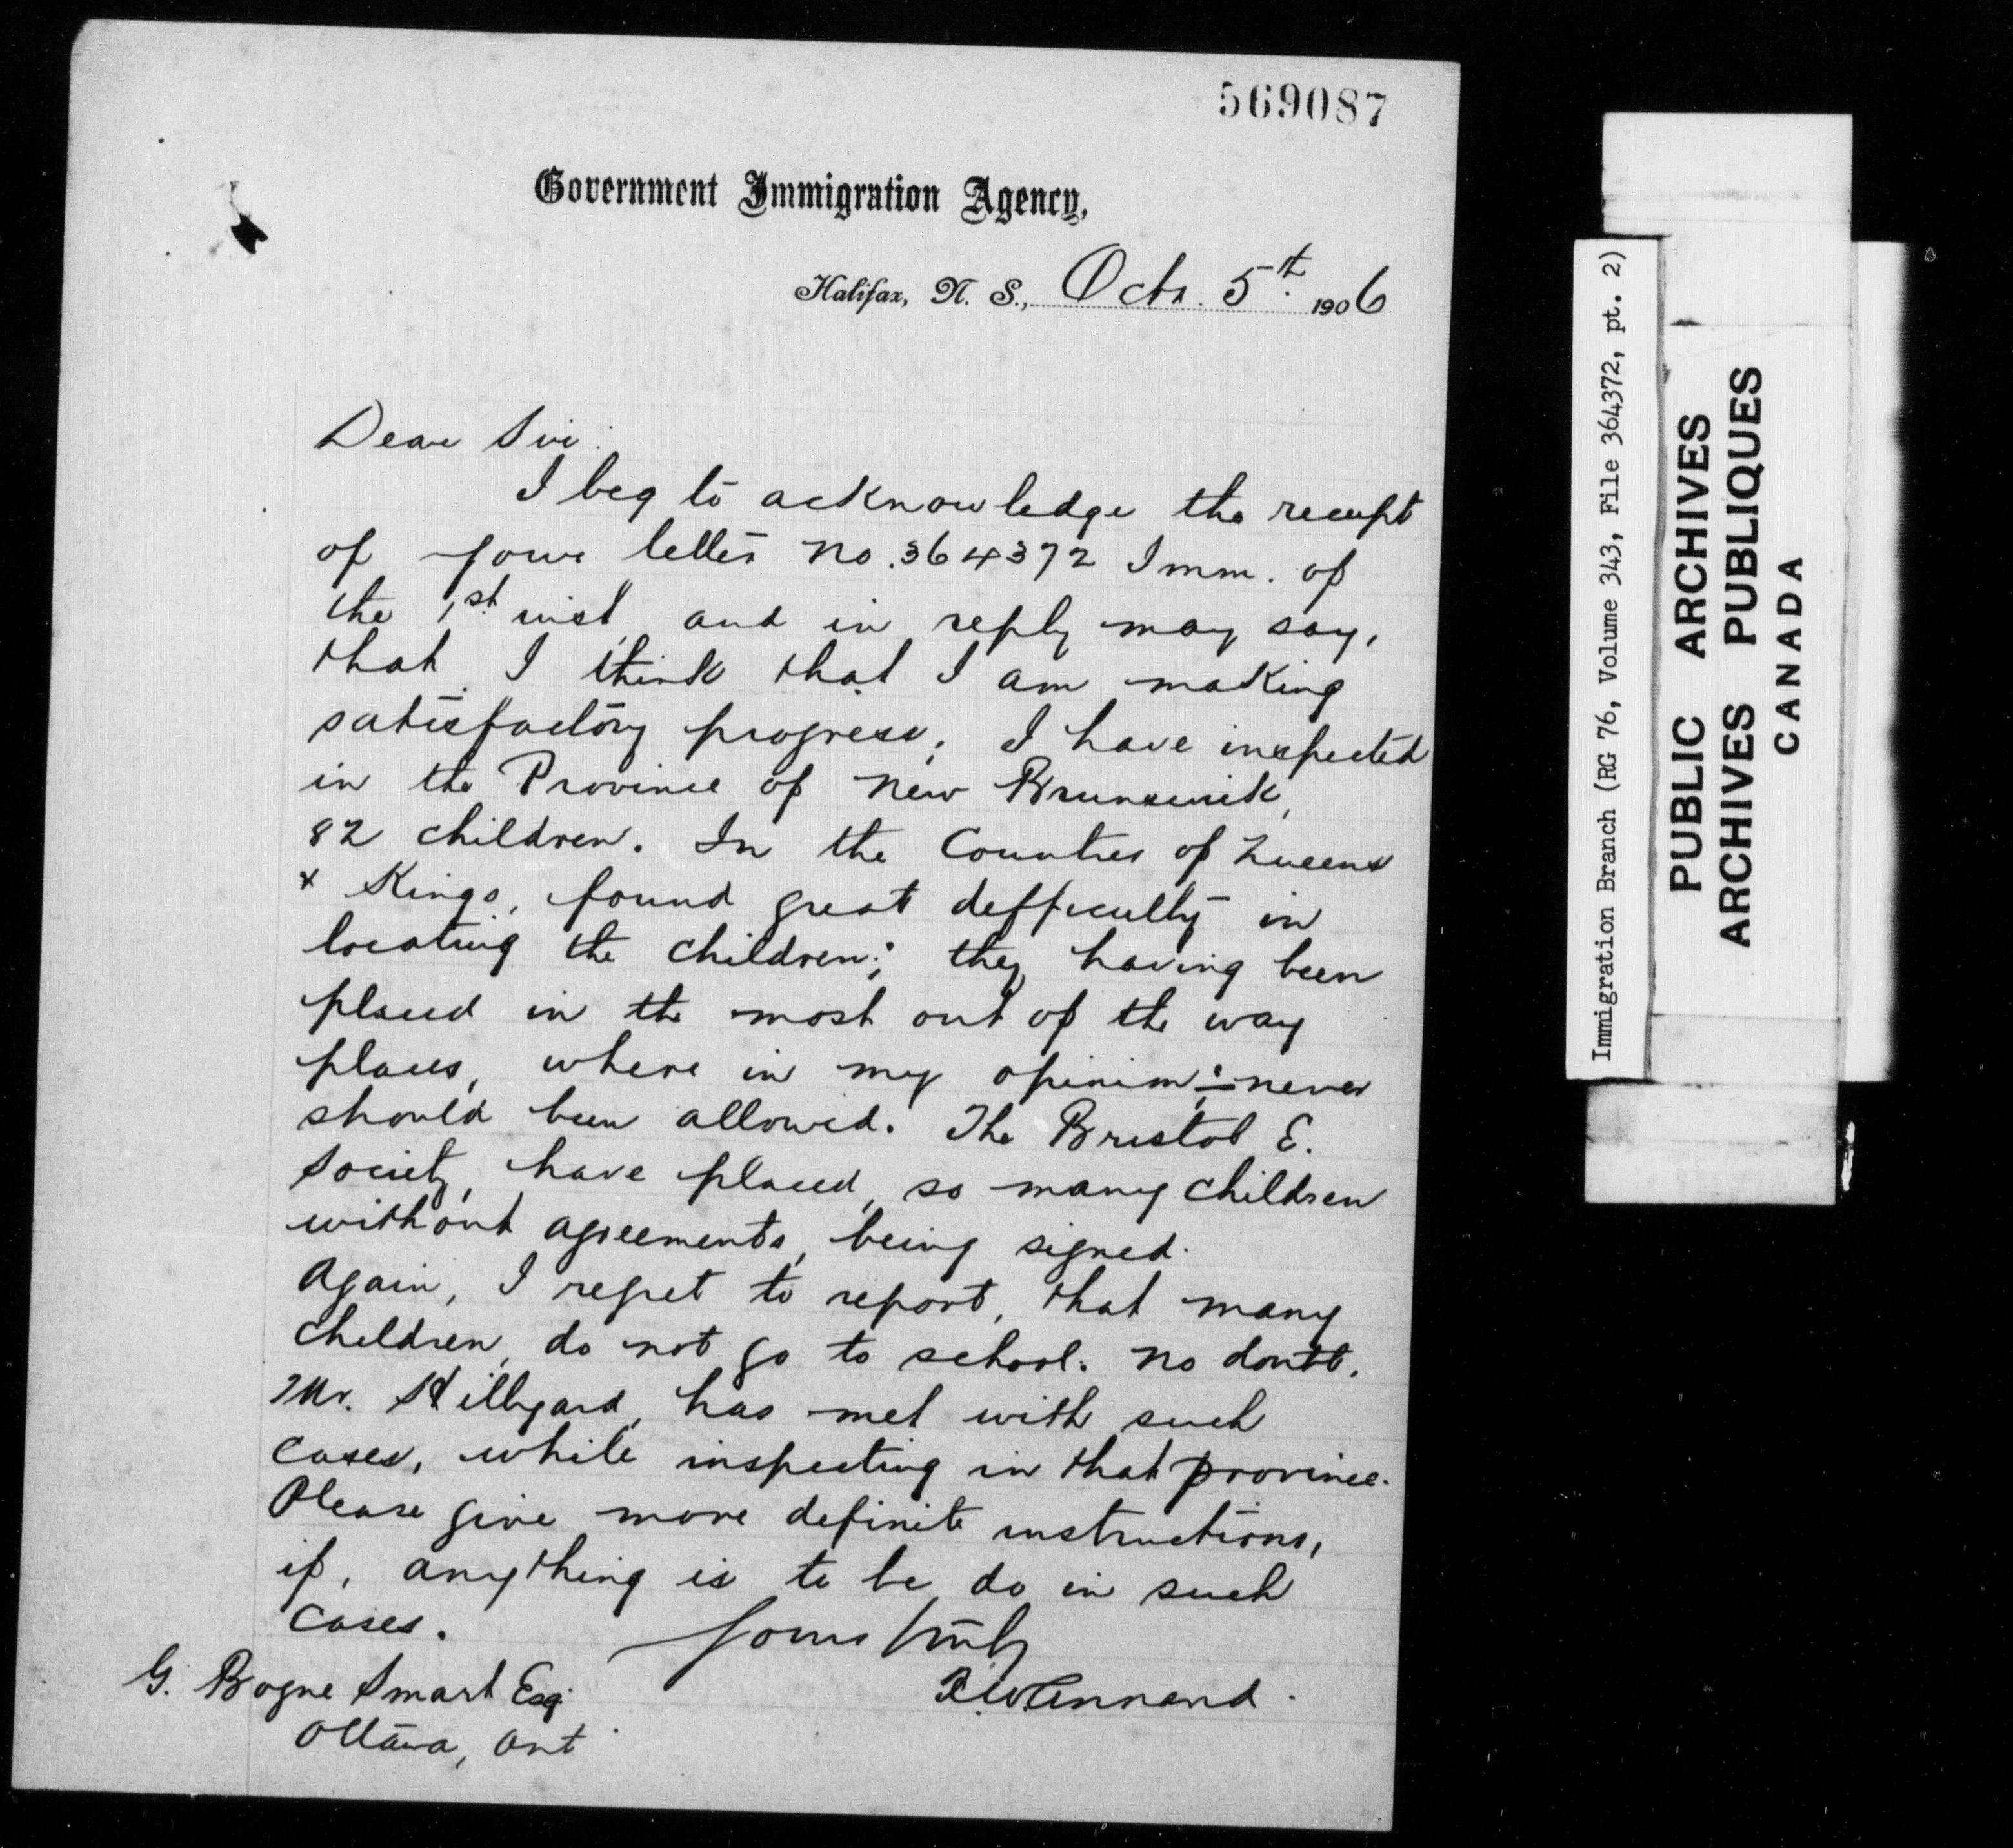 569087
Government Immigration Agency,
Halifax, N. S., Octr. 5th. 1906
Dear Sir:
I beg to acknowledge the receipt
of your letter no. 364372 Imm. of
the 1st inst, and in reply may say,
that I think that I am making
satisfactory progress, I have inspected
in the Province of New Brunswick,
82 children. In the Counties of Queens
& Kings, found great defficulty in
locating the children; they having been
placed in the most out of the way
places, where in my opinion; never
should been allowed. The Bristol E.
Society, have placed, so many children
without agreements, being signed.
Again, I regret to report, that many
children, do not go to school. No doubt,
Mr. Hillyard, has met with such
cases, while inspecting in that province.
Please give more definite instructions,
if, anything is to be do in such
cases.
Yours truly
Annand.
G. Bogue Smart Esq.
Ottawa, Ont
Immigration Branch (RG 76, Volume 343, File 364372, pt. 2)
PUBLIC ARCHIVES
ARCHIVES PUBLIQUES
CANADA